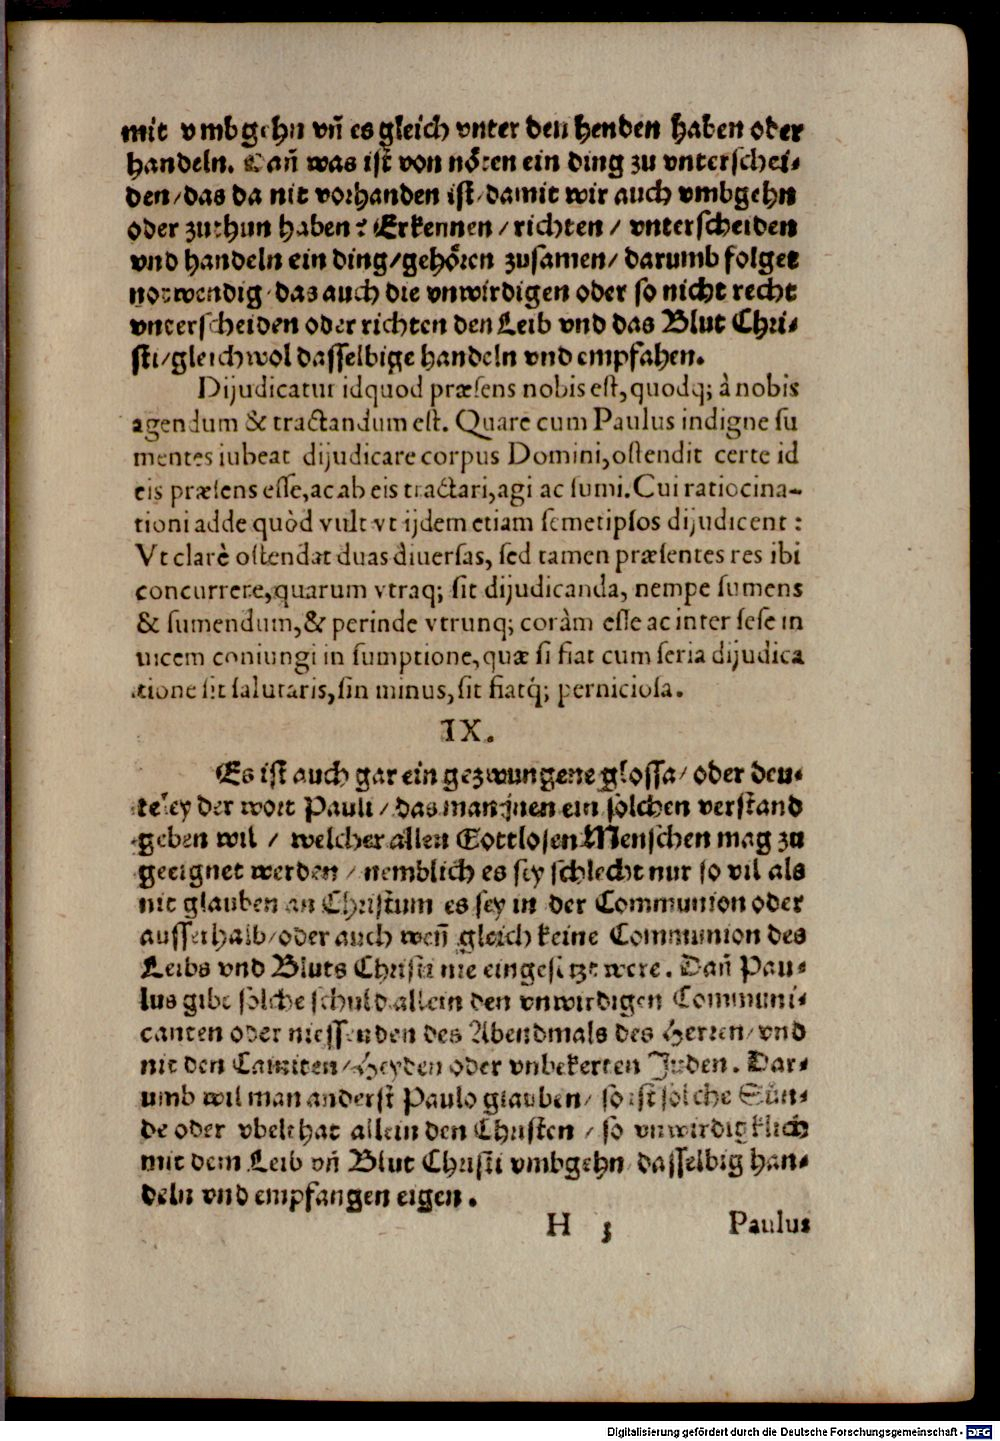 mit vmbgehn vñ es gleich vnter den henden haben oder
handeln. Dañ was ist von nöten ein ding zu vnterschei-
den/das da nit vorhanden ist/damit wir auch vmbgehn
oder zuthun haben? Erkennen/richten/ vnterscheiden
vnd handeln ein ding/gehören zusamen/darumb folget
notwendig/das auch die vnwirdigen oder so nicht recht
vnterscheiden oder richten den Leib vnd das Blut Chri-
sti/gleichwol dasselbige handeln vnd empfahen.
Dijudicatur idquod præsens nobis est,quodq; à nobis
agendum & tractandum est. Quare cum Paulus indigne su
mentes iubeat dijudicare corpus Domini,ostendit certe id
eis præsens esse,ac ab eis tractari,agi ac sumi.Cui ratiocina-
tioni adde quòd vult vt ijdem etiam semetipsos dijudicent:
Vt clarè ostendat duas diuersas, sed tamen præsentes res ibi
concurrere,quarum vtraq; sit dijudicanda, nempe sumens
& sumendum,& perinde vtrunq; coràm esse ac inter sese in
uicem coniungi in sumptione,quæ si fiat cum seria dijudica
tione sit salutaris,sin minus,sit fiatq́; perniciosa.
IX.
Es ist auch gar ein gezwungene glossa/ oder deu-
teley der wort Pauli/das man jnen ein solchen verstand
geben wil/ welcher allen Gottlosen Menschen mag zu
geeignet werden/nemblich es sey schlecht nur so vil als
nit glauben an Christum es sey in der Communion oder
ausserhalb/oder auch weñ gleich keine Communion des
Leibs vnd Bluts Christi nie eingesetzt were. Dañ Pau-
lus gibt solche schuld allein den vnwirdigen Communi-
canten oder niessenden des Abendmals des Herren/vnd
nit den Camiten/Heyden oder vnbekerten Juden. Dar-
umb wil man anderst Paulo glauben/ so ist solche Sün-
de oder vbelthat allein den Christen/ so vnwirdigklich
mit dem Leib vñ Blut Christi vmbgehn dasselbig han-
deln vnd empfangen eigen.
H 3 Paulus
Digitalisierung gefördert durch die Deutsche Forschungsgemeinschaft - DFG